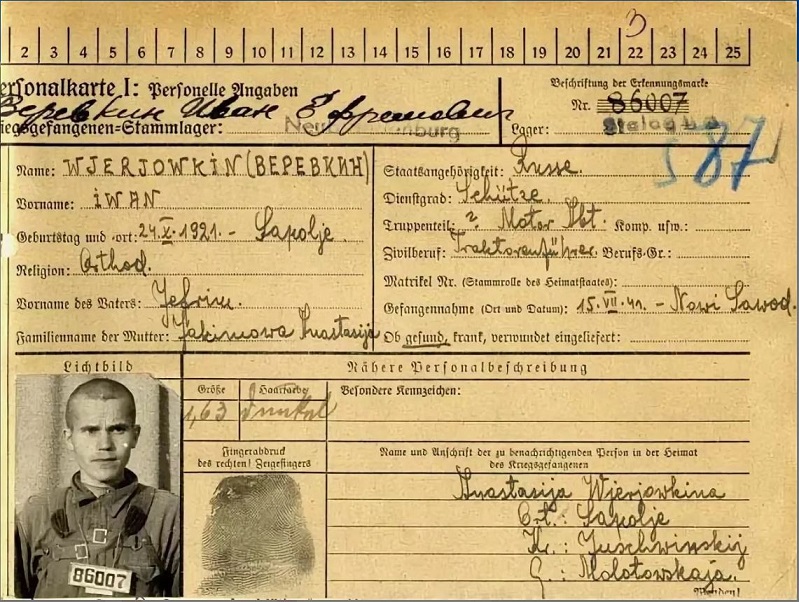 3
2 3 4 5 6 7 8 9 10 11 12 13 14 15 16 17 18 19 20 21 22 23 24 25
ersonalkarte I: Personelle Angaben
Веревкин Иван Ефремович
iegsgefangenen-Stammlager:
Beschriftung der Erkennungsmarke
Nr. 86007
Lager: Stalag
87
Name: WJERJOWKIN (ВЕРЕВКИН)
Vorname: IWAN
Geburtstag und -ort: 24.X.1921. - Sapolje.
Religion: Orthod.
Vorname des Vaters: Jefrim.
Familienname der Mutter: Jakimowa Anastasija
Staatsangehörigkeit: Russe.
Dienstgrad: Schütze.
Truppenteil: ? Motor Abt. Komp. usw.:
Zivilberuf: Traktorenführer. Berufs-Gr.:
Matrikel Nr. (Stammrolle des Heimatstaates):
Gefangennahme (Ort und Datum): 15.VII.41. - Nowi Sawod.
Ob gesund, krank, verwundet eingeliefert:
Lichtbild
86007
Nähere Personalbeschreibung
Größe Haarfarbe Besondere Kennzeichen:
1,63 dunkel
Fingerabdruck
des rechten! Zeigefingers
Name und Anschrift der zu benachrichtigenden Person in der Heimat
des Kriegsgefangenen
Anastasija Wjerjowkina
Ort.: Sapolje
Kr.: Juschwinskij
G.: Molotowskaja.